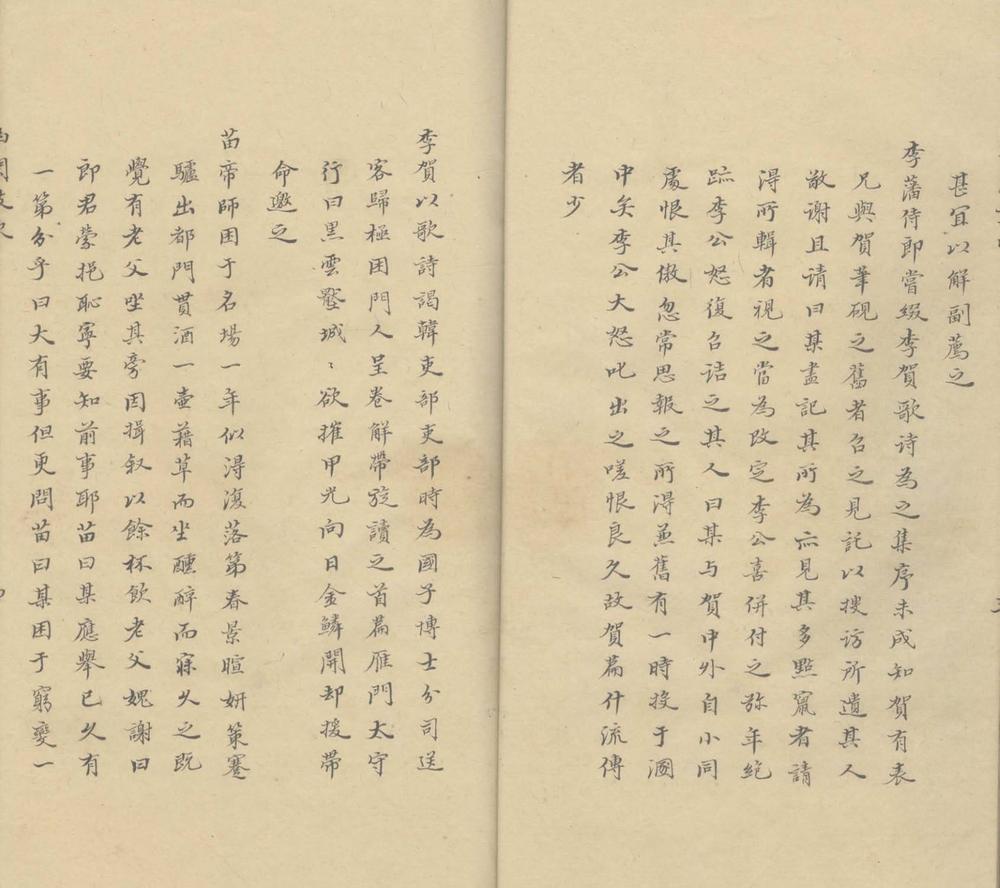 甚宜以解副薦之
李藩侍郎嘗綴李賀歌詩為之集序未成知賀有表
兄與賀筆硯之舊者召之見託以搜訪所遺其人
敬謝且請曰某盡記其所為亦見其多點竄者請
得所輯者視之當為改定李公喜併付之弥年絕
跡李公怒復召詰之其人曰某与賀中外自小同
處恨其傲忽常思報之所得兼舊有一時投于溷
中矣李公大怒叱出之嗟恨良久故賀篇什流傳
者少
李賀以歌詩謁韓吏部吏部時為國子博士分司送
客歸極困門人呈卷解帶旋讀之首篇雁門太守
行曰黑雲壓城〻欲摧甲光向日金鱗開却援帶
命邀之
苗帝師困于名場一年似得復落第春景暄妍策蹇
驢出都門貰酒一壺藉草而坐醺醉而寐久之既
覺有老父坐其旁因揖叙以餘杯飲老父媿謝曰
郎君縈挹恥寧要知前事耶苗曰某應舉已久有
一第分乎曰大有事但更問苗曰某困于窮變一